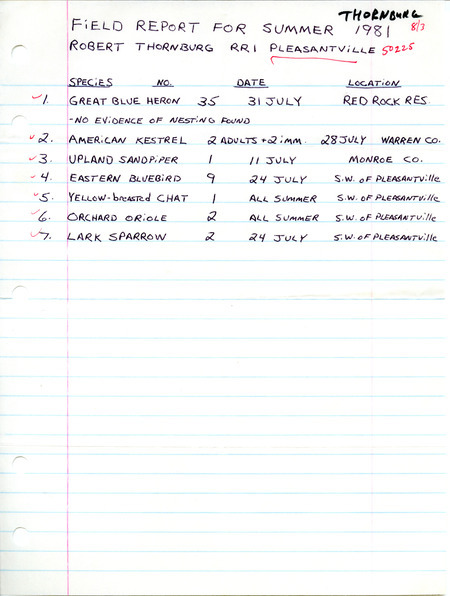 THORNBURG
FIELD REPORT FOR SUMMER 1981 8/3
ROBERT THORNBURG RR1 PLEASANTVILLE 50225
SPECIES NO. DATE LOCATION
1. GREAT BLUE HERON 35 31 JULY RED ROCK RES.
-NO EVIDENCE OF NESTING FOUND
2. AMERICAN KESTREL 2 ADULTS +2 imm. 28 JULY WARREN CO.
3. UPLAND SANDPIPER 1 11 JULY MONROE CO.
4. EASTERN BLUEBIRD 9 24 JULY S.W. OF PLEASANTVille
5. YELLOW-breasted CHAT 1 ALL SUMMER S.W. OF PLEASANTVille
6. ORCHARD ORIOLE 2 ALL SUMMER S.W. OF PLEASANTVille
7. LARK SPARROW 2 24 JULY S.W. OF PLEASANTVille